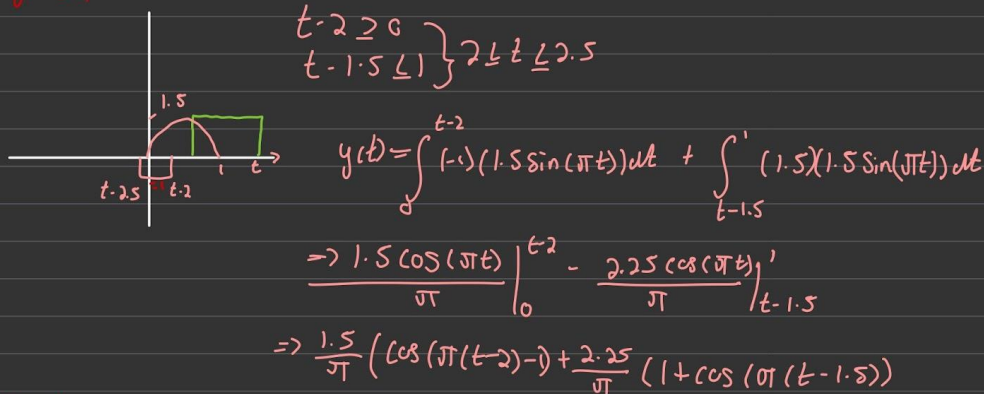 t-2 ≥ 0
t-1.5 ≤ 1 } 2 ≤ t ≤ 2.5
1.5
1 t
t-2.5 -1 t-2
y(t) = ∫_0^{t-2} (-1)(1.5 sin(πt))dt + ∫_{t-1.5}^1 (1.5)(1.5 sin(πt))dt
=> 1.5 cos(πt)/π |_0^{t-2} - 2.25 cos(πt)/π |_{t-1.5}^1
=> 1.5/π (cos(π(t-2)-1) + 2.25/π (1+cos(π(t-1.5))